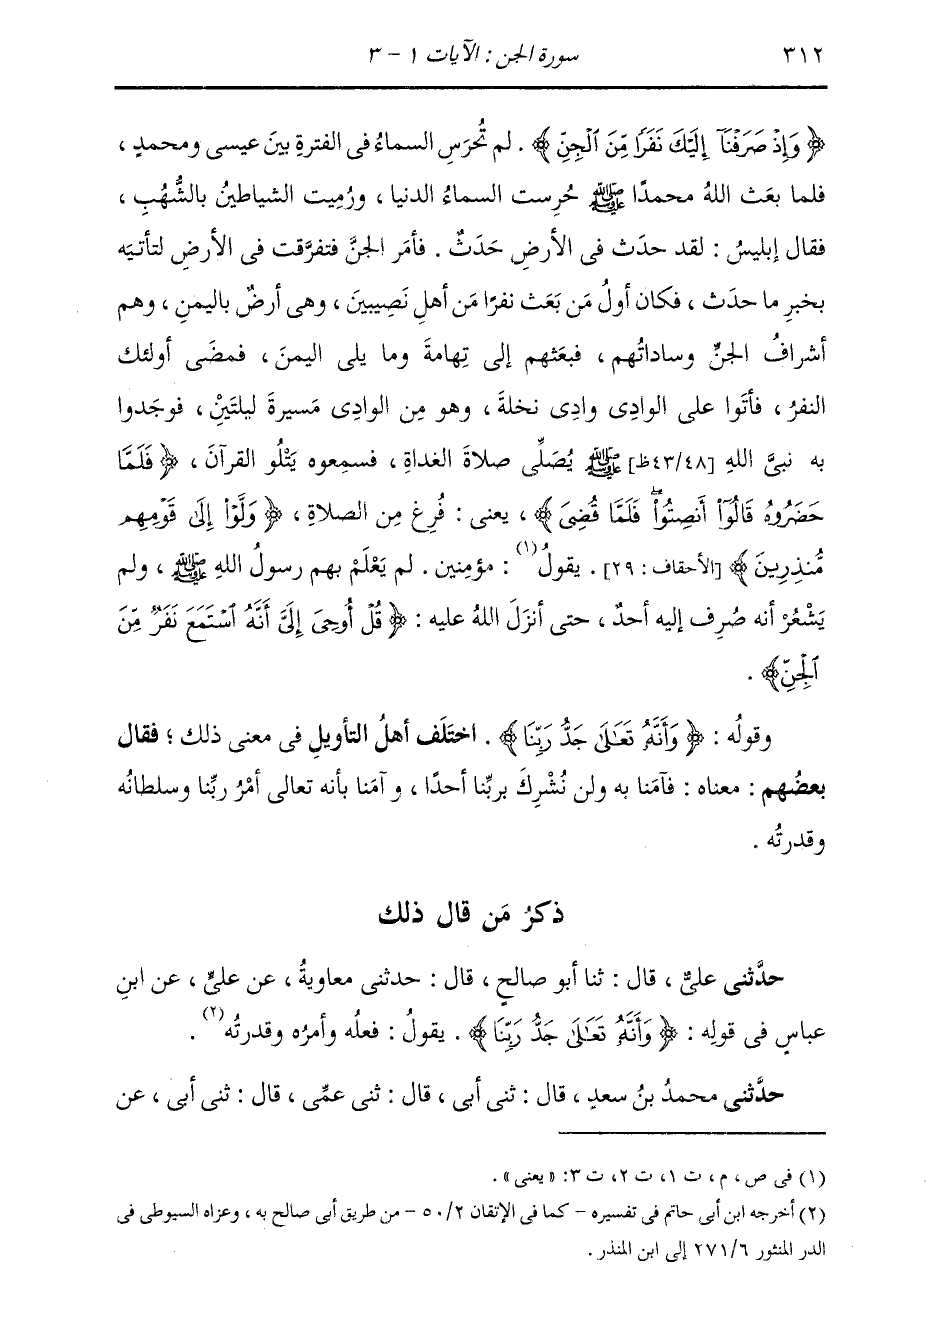 ٣١٢ سورة الجن : الآيات ١ - ٣
﴿ وَإِذْ صَرَفْنَآ إِلَيْكَ نَفَرًا مِّنَ ٱلْجِنِّ ﴾ . لم تُحرَسِ السماءُ فى الفترةِ بينَ عيسى ومحمدٍ ،
فلما بعَث اللهُ محمدًا ﷺ حُرِست السماءُ الدنيا ، ورُمِيت الشياطينُ بالشُّهُبِ ،
فقال إبليسُ : لقد حدَث فى الأرضِ حَدَثٌ . فأمَر الجنَّ فتفرَّقت فى الأرضِ لتأتيَه
بخبرِ ما حدَث ، فكان أولُ مَن بَعَث نفرًا مَن أهلِ نَصِيبينَ ، وهى أرضٌ باليمنِ ، وهم
أشرافُ الجنِّ وساداتُهم ، فبعَثهم إلى تِهامةَ وما يلى اليمنَ ، فمضَى أولئك
النفرُ ، فأتَوا على الوادِى وادِى نخلةَ ، وهو مِن الوادِى مَسيرةَ ليلتَيْنِ ، فوجَدوا
به نبىَّ اللهِ [٤٣/٤٨ظ] ﷺ يُصَلِّى صلاةَ الغداةِ ، فسمِعوه يَتْلُو القرآنَ ، ﴿ فَلَمَّا
حَضَرُوهُ قَالُوٓا۟ أَنصِتُوا۟ۖ فَلَمَّا قُضِىَ ﴾ ، يعنى : فُرِغ مِن الصلاةِ ، ﴿ وَلَّوْا۟ إِلَىٰ قَوْمِهِم
مُّنذِرِينَ ﴾ [الأحقاف : ٢٩] . يقولُ(١) : مؤمِنين . لم يَعْلَمْ بهم رسولُ اللهِ ﷺ ، ولم
يَشْعُرْ أنه صُرِف إليه أحدٌ ، حتى أنزَلَ اللهُ عليه : ﴿ قُلْ أُوحِىَ إِلَىَّ أَنَّهُ ٱسْتَمَعَ نَفَرٌ مِّنَ
ٱلْجِنِّ ﴾ .
وقولُه : ﴿ وَأَنَّهُۥ تَعَٰلَىٰ جَدُّ رَبِّنَا ﴾ . اختَلَف أهلُ التأويلِ فى معنى ذلك ؛ فقال
بعضُهم : معناه : فآمَنا به ولن نُشْرِكَ بربِّنا أحدًا ، و آمَنا بأنه تعالى أمْرُ ربِّنا وسلطانُه
وقدرتُه .
ذكرُ مَن قال ذلك
حدَّثنى علىٌّ ، قال : ثنا أبو صالحٍ ، قال : حدثنى معاويةُ ، عن علىٍّ ، عن ابنِ
عباسٍ فى قولِه : ﴿ وَأَنَّهُۥ تَعَٰلَىٰ جَدُّ رَبِّنَا ﴾ . يقولُ : فعلُه وأمرُه وقدرتُه(٢) .
حدَّثنى محمدُ بنُ سعدٍ ، قال : ثنى أبى ، قال : ثنى عمِّى ، قال : ثنى أبى ، عن
(١) فى ص ، م ، ت ١، ت ٢، ت ٣: « يعنى » .
(٢) أخرجه ابن أبى حاتم فى تفسيره - كما فى الإتقان ٥٠/٢ - من طريق أبى صالح به ، وعزاه السيوطى فى
الدر المنثور ٢٧١/٦ إلى ابن المنذر .